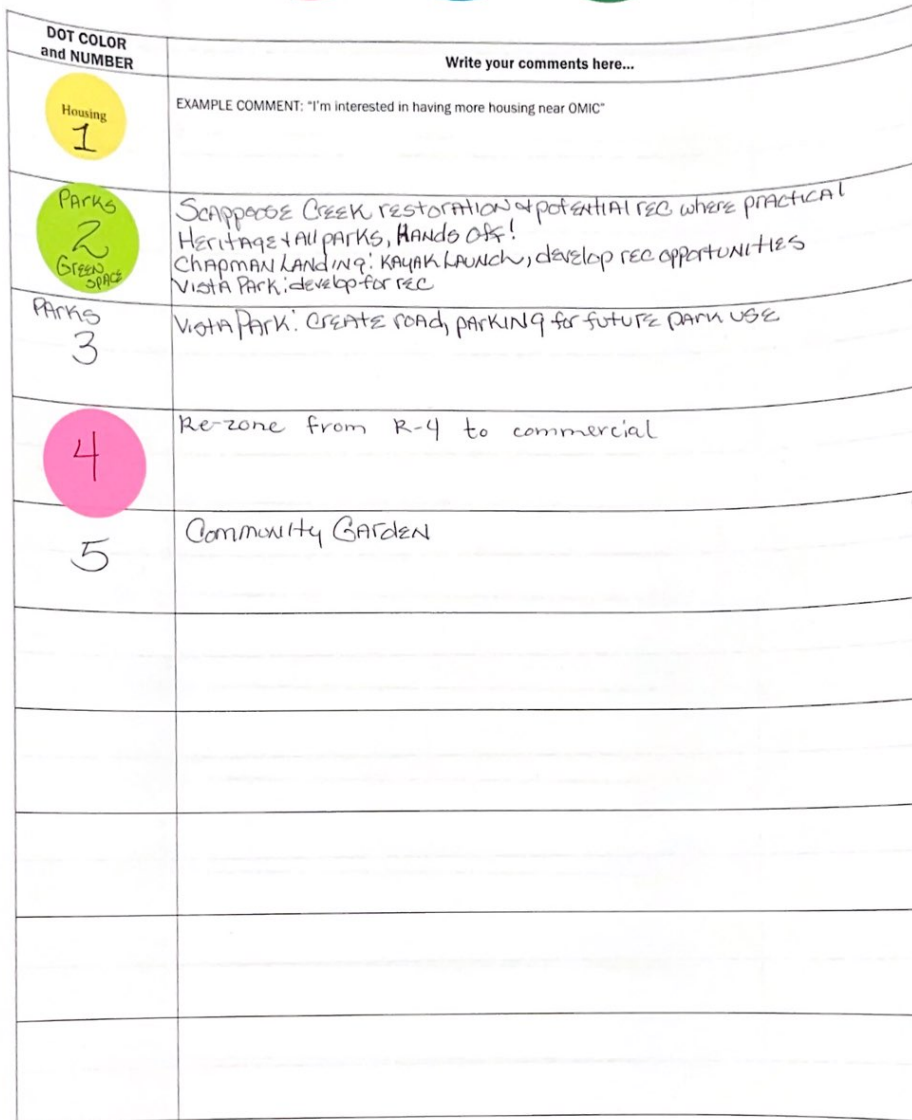 DOT COLOR
and NUMBER
Write your comments here...
Housing
1
EXAMPLE COMMENT: "I'm interested in having more housing near OMIC"
Parks
2
Green
Space
Scappoose Creek restoration & potential rec where practical
Heritage + All parks, Hands Off!
Chapman Landing: Kayak Launch, develop rec opportunities
Vista Park: develop for rec
Parks
3
Vista Park: Create road, parking for future park use
4
Re-zone from R-4 to commercial
5
Community Garden